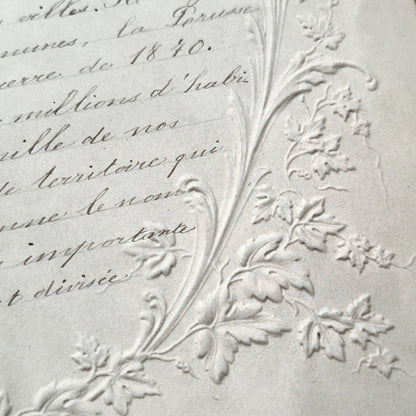 villes.
munes, la Prusse
erre de 1870.
millions d'habi-
ille de nos
territoire qui
nne le nom
importante
t divisée